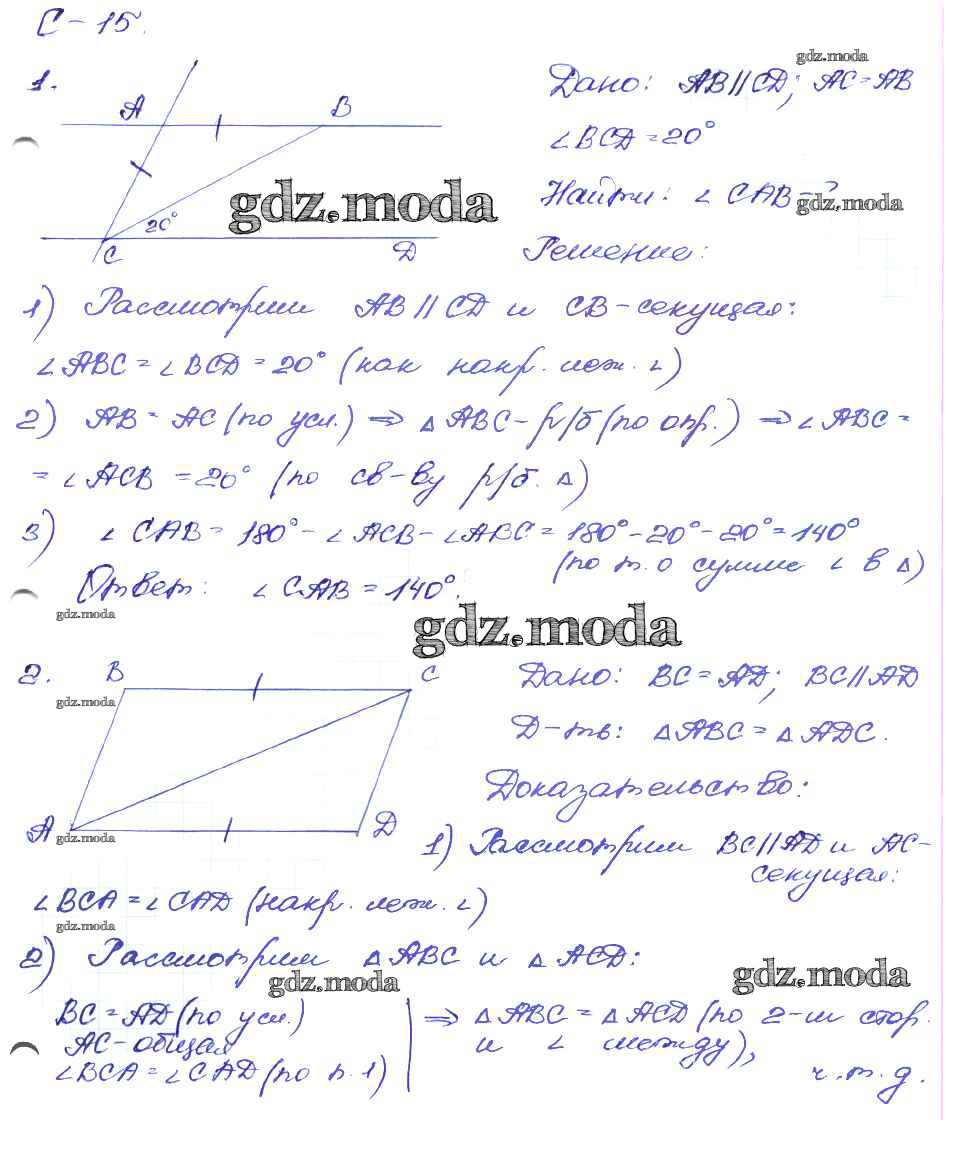 С-15.
gdz.moda
1.
Дано: AB//CD; AC=AB
A
B
∠BCD=20°
gdz.moda
Найти: ∠CAB-?
gdz.moda
20°
C
D
Решение:
1) Рассмотрим AB//CD и CB-секущая:
∠ABC=∠BCD=20° (как накр. леж. ∠)
2) AB=AC (по усл.) ⇒ △ABC-р/б (по опр.) ⇒ ∠ABC=
=∠ACB=20° (по св-ву р/б. △)
3) ∠CAB=180°-∠ACB-∠ABC=180°-20°-20°=140°
(по т. о сумме ∠ в △)
Ответ: ∠CAB=140°.
gdz.moda
gdz.moda
2.
B
C
Дано: BC=AD; BC//AD
gdz.moda
Д-ть: △ABC=△ADC.
Доказательство:
A
D
gdz.moda
1) Рассмотрим BC//AD и AC-
секущая:
∠BCA=∠CAD (накр. леж. ∠)
gdz.moda
2) Рассмотрим △ABC и △ACD:
gdz.moda
gdz.moda
BC=AD (по усл.)
AC-общая
∠BCA=∠CAD (по п.1)
⇒ △ABC=△ACD (по 2-м стор.
и ∠ между),
ч.т.д.